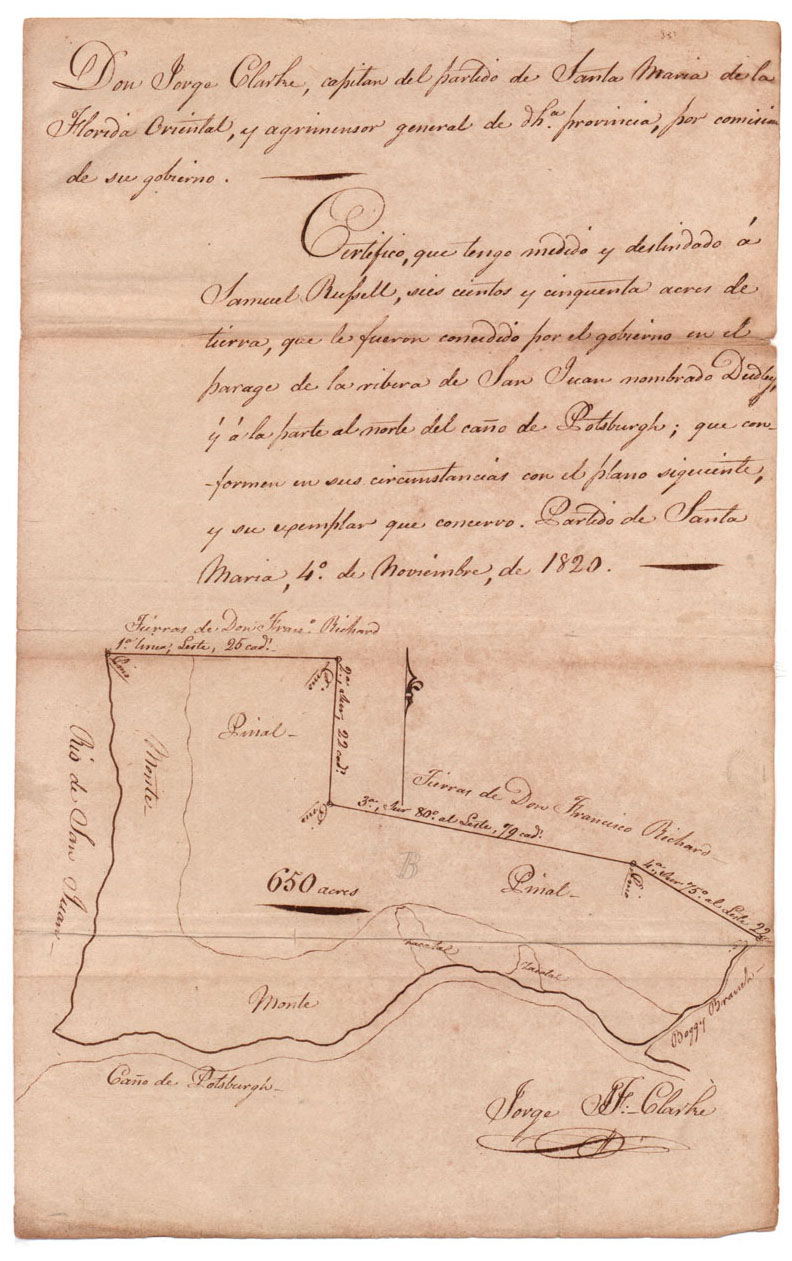 Don Jorge Clarke, capitan del partido de Santa Maria de la
Florida Oriental, y agrimensor general de dh.ª provincia, por comision
de su gobierno.
Certifico, que tengo medido y deslindado á
Samuel Russell, sies cientos y cinquenta acres de
tierra, que le fueron concedido por el gobierno en el
parage de la ribera de San Juan nombrado Dudley,
y á la parte al norte del caño de Potsburgh; que con-
-formen en sus circumstancias con el plano siguiente,
y su exemplar que concervo. Partido de Santa
Maria, 4º. de Noviembre, de 1820.
Tierras de Don Franº. Richard
1ª. linea, Leste, 25 cadˢ.
Pino
Pino
2ª., Sur, 22 cadˢ.
Pinal
Monte
Rio de San Juan
Pino
Tierras de Don Francisco Richard
3ª., Sur 80º. al Leste, 79 cadˢ.
B
650 acres
Pinal
Pino
4ª., Sur 75º. al Leste 22
zacatal
zacatal
Monte
Boggy Branch
Caño de Potsburgh
Jorge J. F. Clarke